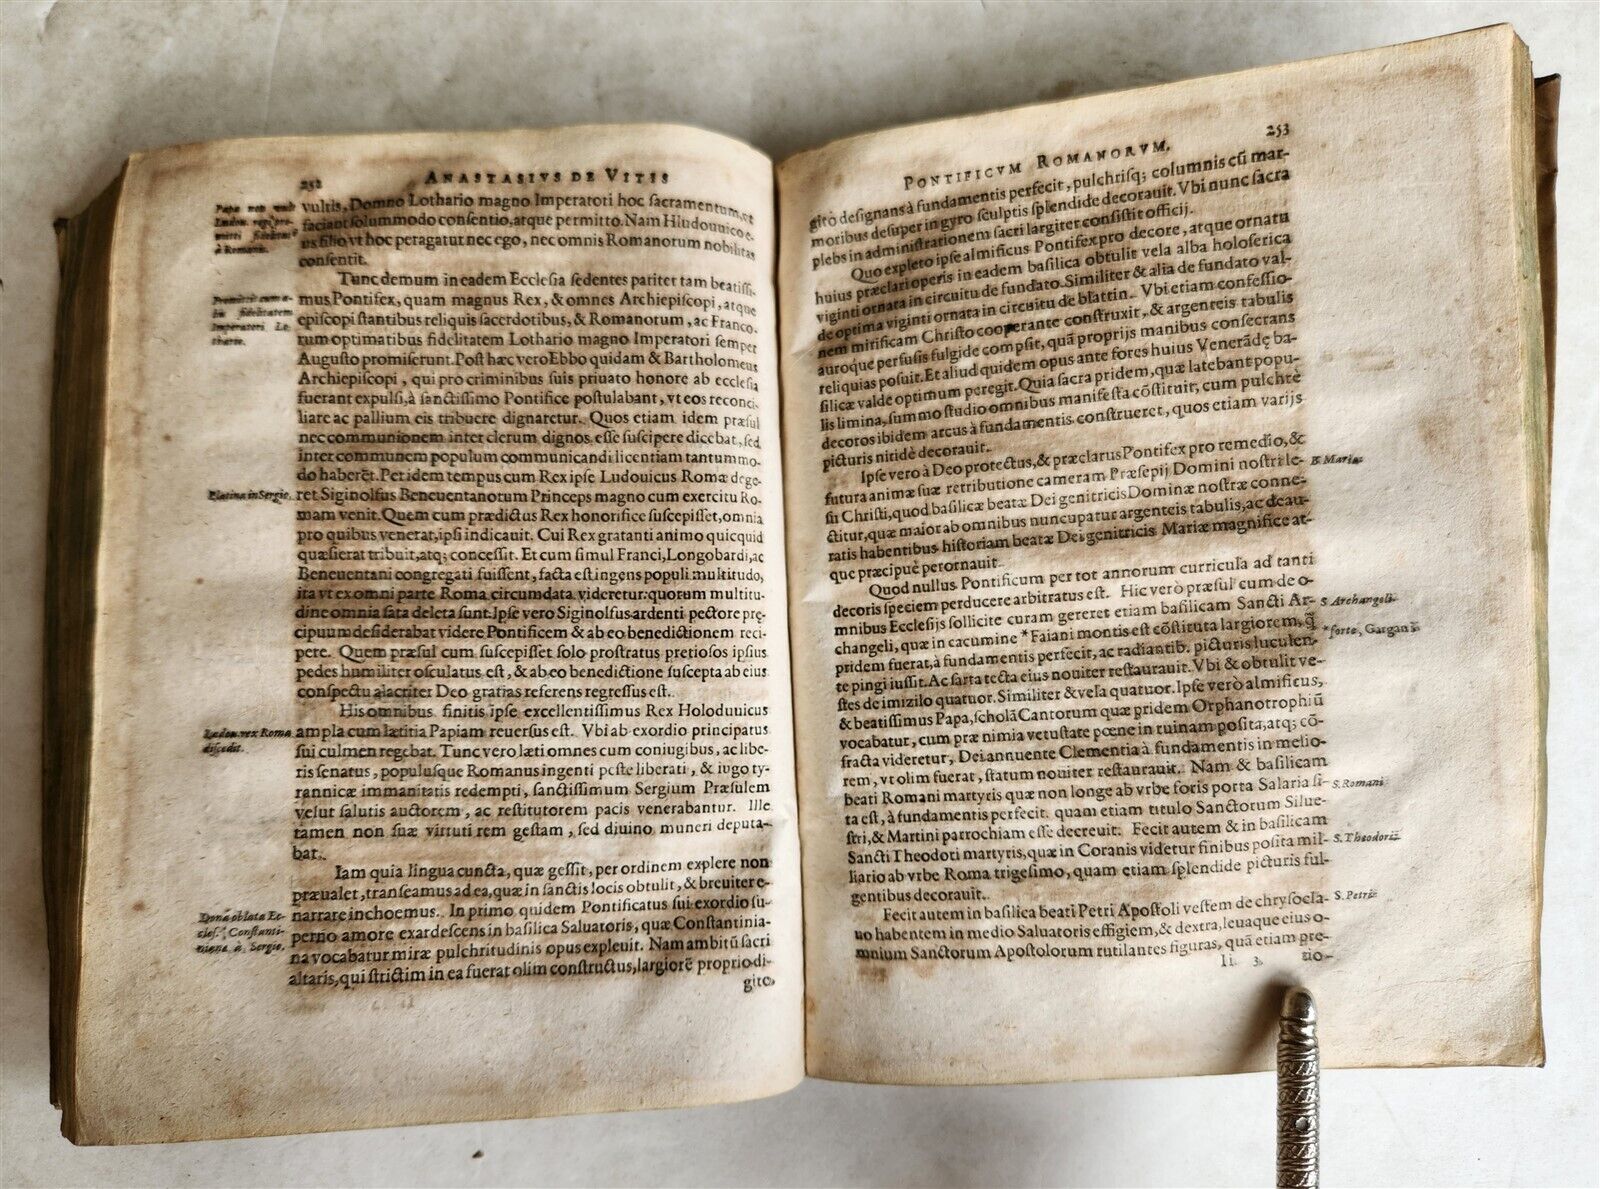 252 ANASTASIVS DE VITIS
Papa non vult
Ludou. regi pro-
mitti fidelitatē
à Romanis.
vultis, Domno Lothario magno Imperatori hoc sacramentum, vt
faciant solummodo consentio, atque permitto. Nam Hludouuico e-
ius filio vt hoc peragatur nec ego, nec omnis Romanorum nobilitas
consentit.
Tunc demum in eadem Ecclesia sedentes pariter tam beatissi-
mus Pontifex, quam magnus Rex, & omnes Archiepiscopi, atque
episcopi stantibus reliquis sacerdotibus, & Romanorum, ac Franco-
rum optimatibus fidelitatem Lothario magno Imperatori semper
Augusto promiserunt. Post hæc vero Ebbo quidam & Bartholomeus
Archiepiscopi, qui pro criminibus suis priuato honore ab ecclesia
fuerant expulsi, à sanctissimo Pontifice postulabant, vt eos reconci-
liare ac pallium eis tribuere dignaretur. Quos etiam idem præsul
nec communionem inter clerum dignos esse suscipere dicebat, sed
inter communem populum communicandi licentiam tantummo-
do haberēt. Per idem tempus cum Rex ipse Ludouicus Romæ dege-
ret Siginolfus Beneuentanorum Princeps magno cum exercitu Ro-
mam venit. Quem cum prædictus Rex honorifice suscepisset, omnia
pro quibus venerat, ipsi indicauit. Cui Rex gratanti animo quicquid
quæsierat tribuit, atq; concessit. Et cum simul Franci, Longobardi, ac
Beneuentani congregati fuissent, facta est ingens populi multitudo,
ita vt ex omni parte Roma circumdata videretur: quorum multitu-
dine omnia sata deleta sunt. Ipse vero Siginolfus ardenti pectore prę-
cipuum desiderabat videre Pontificem & ab eo benedictionem reci-
pere. Quem præsul cum suscepisset solo prostratus pretiosos ipsius
pedes humiliter osculatus est, & ab eo benedictione suscepta ab eius
conspectu alacriter Deo gratias referens regressus est.
His omnibus finitis ipse excellentissimus Rex Holoduuicus
ampla cum lætitia Papiam reuersus est. Vbi ab exordio principatus
sui culmen regebat. Tunc vero læti omnes cum coniugibus, ac libe-
ris senatus, populusque Romanus ingenti peste liberati, & iugo ty-
rannicæ immanitatis redempti, sanctissimum Sergium Præsulem
velut salutis auctorem, ac restitutorem pacis venerabantur. Ille
tamen non suæ virtuti rem gestam, sed diuino muneri deputa-
bat.
Iam quia lingua cuncta, quæ gessit, per ordinem explere non
præualet, transeamus ad ea, quæ in sanctis locis obtulit, & breuiter e-
narrare inchoemus. In primo quidem Pontificatus sui exordio su-
perno amore exardescens in basilica Saluatoris, quæ Constantinia-
na vocabatur miræ pulchritudinis opus expleuit. Nam ambitū sacri
altaris, qui strictim in ea fuerat olim constructus, largiorē proprio di-
gito
Promittit cum a-
liis fidelitatem
Imperatori Lo-
thario.
Platina in Sergio.
Ludou. rex Roma
discedit.
Dona oblata Ec-
cles. Constanti-
nianæ à Sergio.
PONTIFICVM ROMANORVM. 253
gito designans à fundamentis perfecit, pulchrisq; columnis cū mar-
moribus desuper in gyro sculptis splendide decorauit. Vbi nunc sacra
plebs in administrationem sacri largiter consistit officij.
Quo expleto ipse almificus Pontifex pro decore, atque ornatu
huius præclari operis in eadem basilica obtulit vela alba holoserica
viginti ornata in circuitu de fundato. Similiter & alia de fundato val-
de optima viginti ornata in circuitu de blattin. Vbi etiam confessio-
nem mirificam Christo cooperante construxit, & argenteis tabulis
auroque perfusis fulgide compsit, quā proprijs manibus consecrans
reliquias posuit. Et aliud quidem opus ante fores huius Venerādę ba-
silicæ valde optimum peregit. Quia sacra pridem, quæ latebant popu-
lis limina, summo studio omnibus manifesta cōstituit, cum pulchrè
decoros ibidem arcus à fundamentis construeret, quos etiam varijs
picturis nitidè decorauit.
Ipse vero à Deo protectus, & præclarus Pontifex pro remedio, &
futura animæ suæ retributione cameram Præsepij Domini nostri Ie-
su Christi, quod basilicæ beatæ Dei genitricis Dominæ nostræ conne-
ctitur, quæ maior ab omnibus nuncupatur argenteis tabulis, ac deau-
ratis habentibus historiam beatæ Dei genitricis Mariæ magnifice at-
que præcipuè perornauit.
Quod nullus Pontificum per tot annorum curricula ad tanti
decoris speciem perducere arbitratus est. Hic verò præsul cum de o-
mnibus Ecclesijs sollicite curam gereret etiam basilicam Sancti Ar-
changeli, quæ in cacumine *Faiani montis est cōstituta largiorem, q̃
pridem fuerat, à fundamentis perfecit, ac radiantib. picturis luculen-
te pingi iussit. Ac sarta tecta eius nouiter restaurauit. Vbi & obtulit ve-
stes de imizilo quatuor. Similiter & vela quatuor. Ipse verò almificus,
& beatissimus Papa, scholā Cantorum quæ pridem Orphanotrophiū
vocabatur, cum præ nimia vetustate pœne in ruinam posita, atq; cō-
fracta videretur, Dei annuente Clementia à fundamentis in melio-
rem, vt olim fuerat, statum nouiter restaurauit. Nam & basilicam
beati Romani martyris quæ non longe ab vrbe foris porta Salaria si-
ta est, à fundamentis perfecit. quam etiam titulo Sanctorum Silue-
stri, & Martini parrochiam esse decreuit. Fecit autem & in basilicam
Sancti Theodori martyris, quæ in Coranis videtur finibus posita mil-
liario ab vrbe Roma trigesimo, quam etiam splendide picturis ful-
gentibus decorauit.
Fecit autem in basilica beati Petri Apostoli vestem de chrysocla-
uo habentem in medio Saluatoris effigiem, & dextra, leuaque eius o-
mnium Sanctorum Apostolorum rutilantes figuras, quā etiam pre-
Ii 3 tio-
B. Mariæ
S Archangeli.
*forte, Gargani
S. Romani
S. Theodori
S. Petri